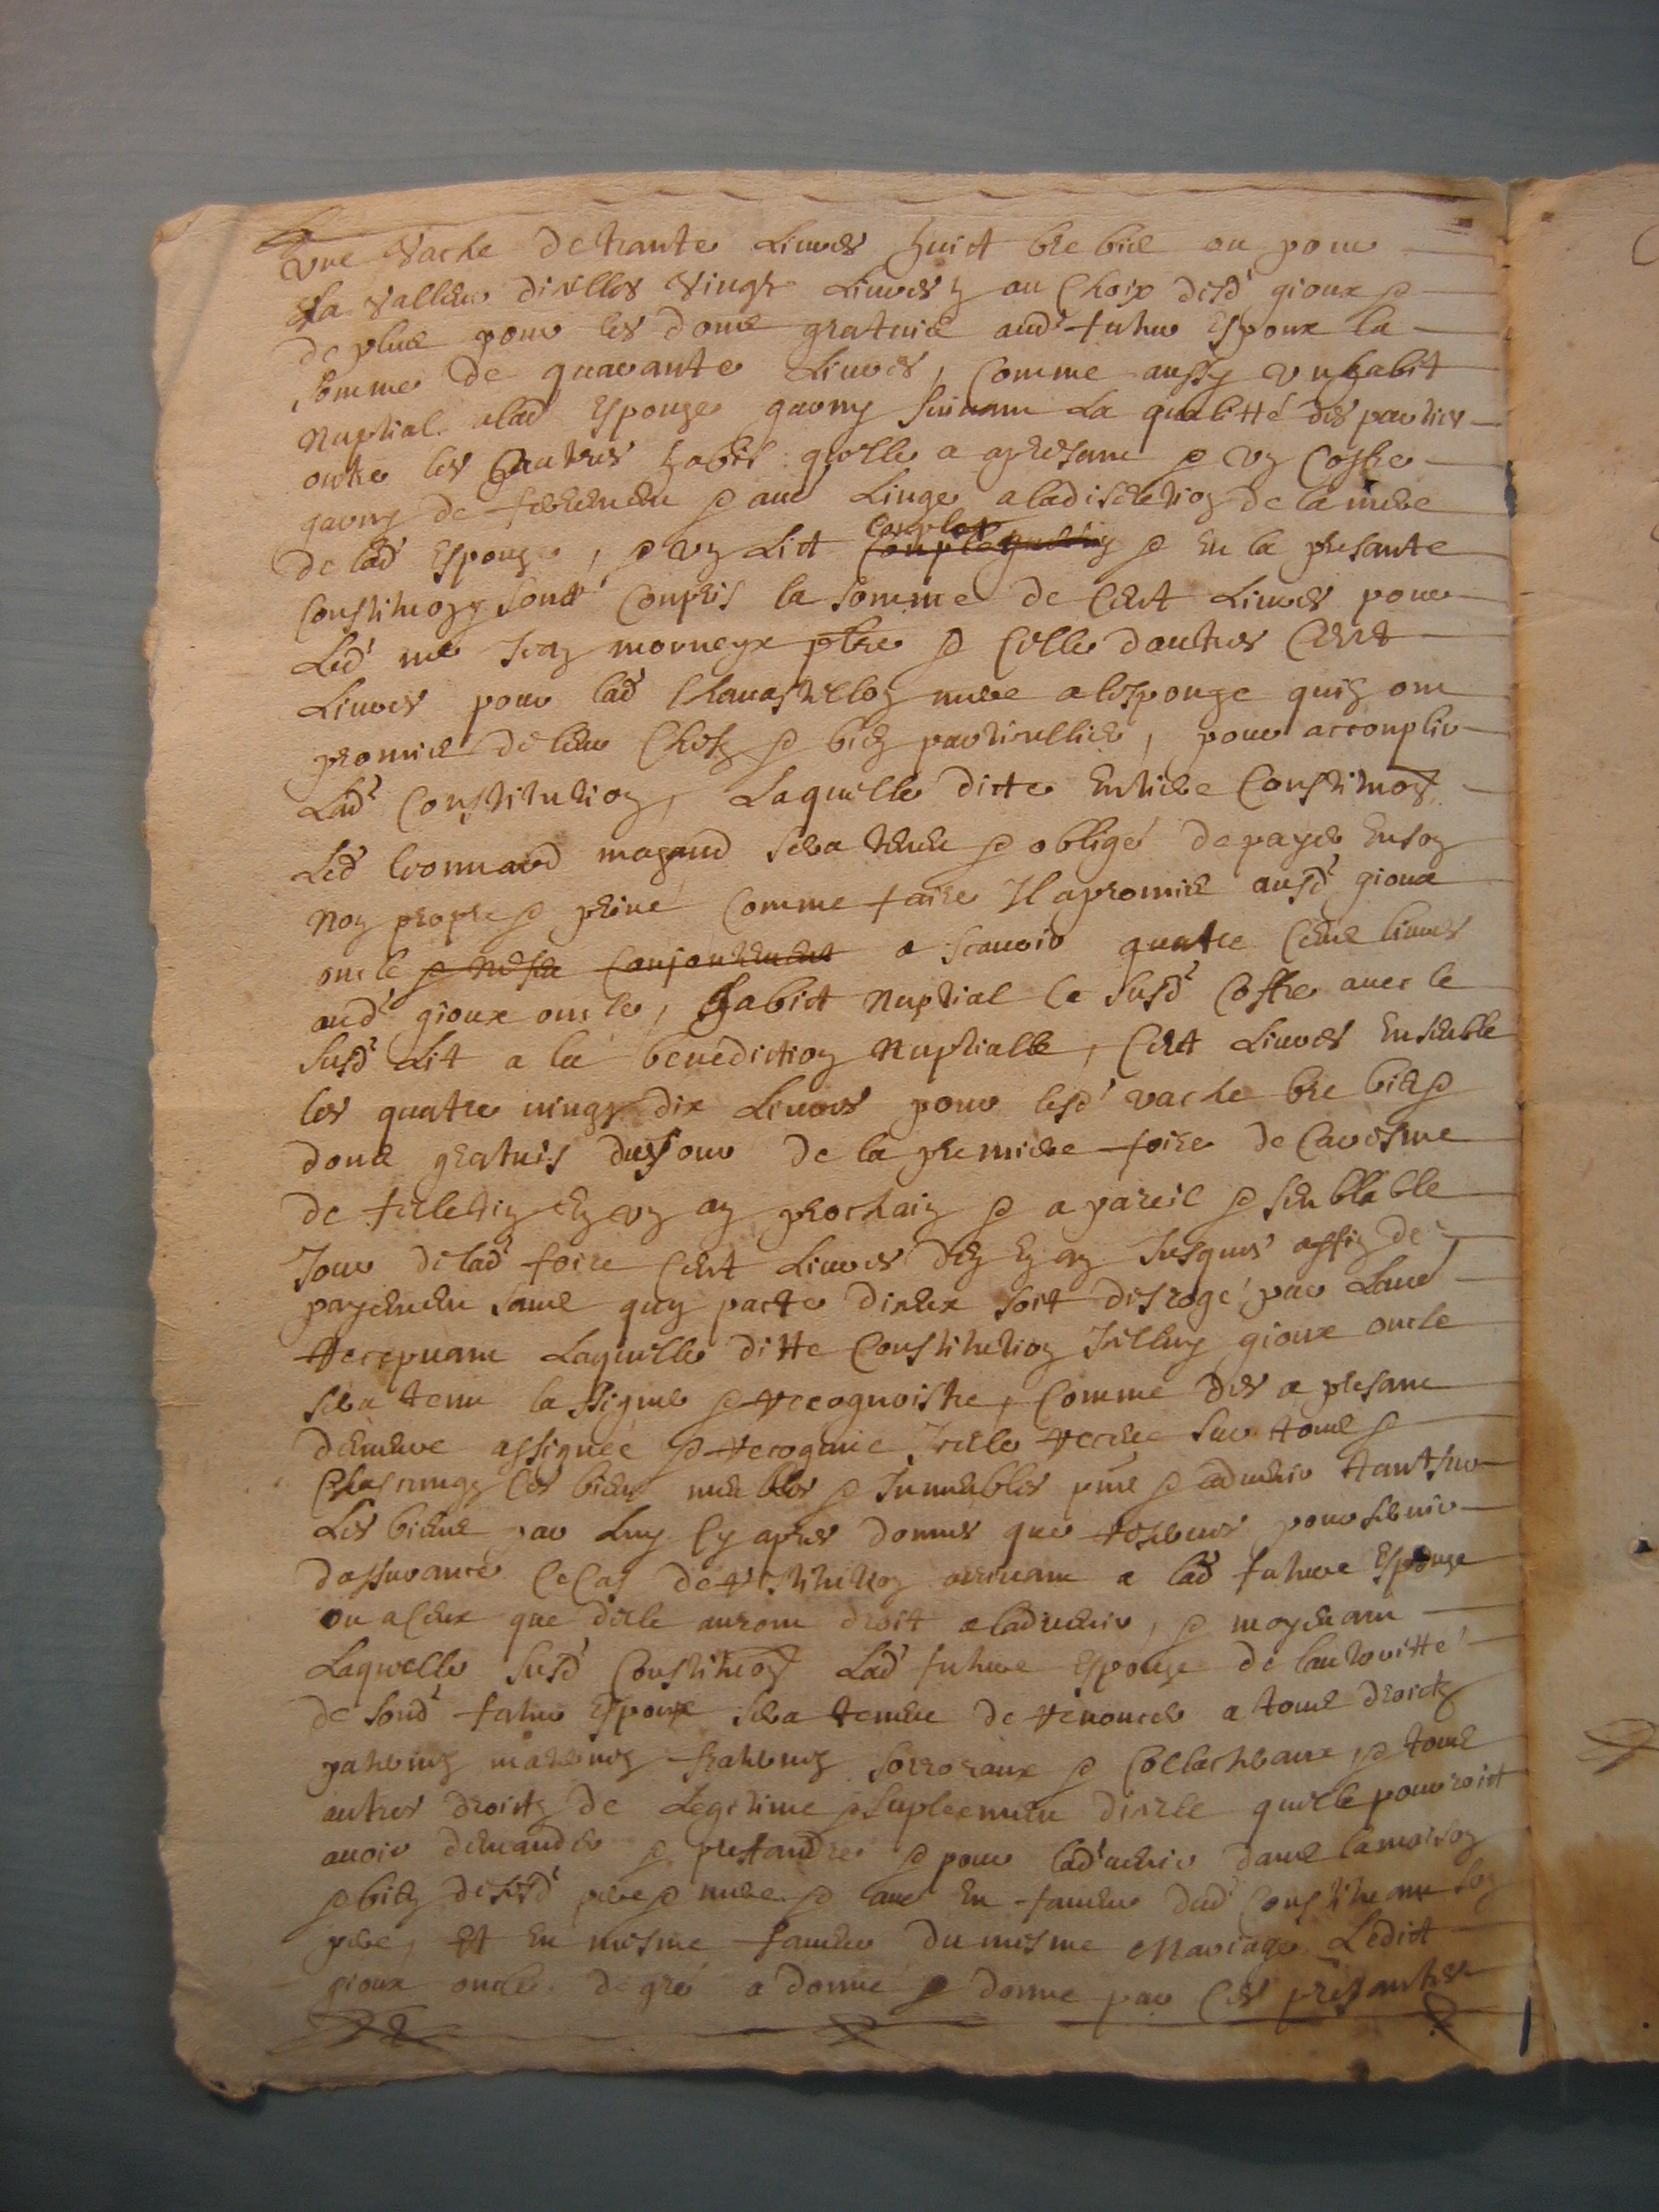 une vache de trante livres huict brebie ou pour
la valleur dicelles vingt livres au choix desd gioux et
de plus pour les dons gratuis aud futur espoux la
somme de quarante livres, comme aussy un habit
nuptial a lad espouze garny suivant la qualitté des parties
outre les autres habis quelle a apresant et un coffre
garny de ferrement et avec linge a la discretion de la mere
de lad espouze, et un lict complet et en la presante
constituon sont compris la somme de cent livres pour
led me Jean morneyx ptre et celle dautres cent
livres pour lad mere a lespouze quilz ont
promies de leur chefz et bien particullier, pour accomplir
lad constitution, laquelle ditte entiere constituon
led leonnard magaud sera tenu et obligé de payer en son
non propre et privé comme faire Il a promies ausd gioux
oncle et nepveu conjointement a scavoir quatre cens livres
aud gioux oncle, habict nuptial le susd coffre avec le
susd lit a la benediction nuptialle, cent livres ensemble
les quatre vingt dix livres pour lesd vache brebies et
dons gratuis du jour de la premiere foire de caresme
de felletin en un an prochain et a pareil et semblable
Jour de lad foire cent livres den en an Jusques affin de
payement sans quun pacte diceux soit desrogé par lautre
recepvant laquelle ditte constitution Icelluy gioux oncle
sera tenu lassigner et recognoistre, comme des a presant
demeure assignée et recognue Icelle receue sur tous et
chascungs ces biens meubles et Inmeubles pns et advenir tant sur
les biens par luy cy apres donnes que reserves pour servir
dassurance le cas de restitution arrivant a lad future espouze
ou a ceux que dicelle auront droit a ladvenir, et moyenant
laquelle susd constituon lad future espouze de lautoritté
de sond futur espoux sera tenue de renoncer a tous droictz
paternels maternels fraternels sororeaux et collacteraux, et tous
autres droictz de legitime et supleement dicelle quelle pourroict
avoir demander et pretandre et pour ladvenir dans la maison
et bien de sesd pere et mere et ce en faveur dud constituant son
pere, Et en mesme faveur du mesme mariage ledict
gioux oncle de gré a donné et donne par ces presantes